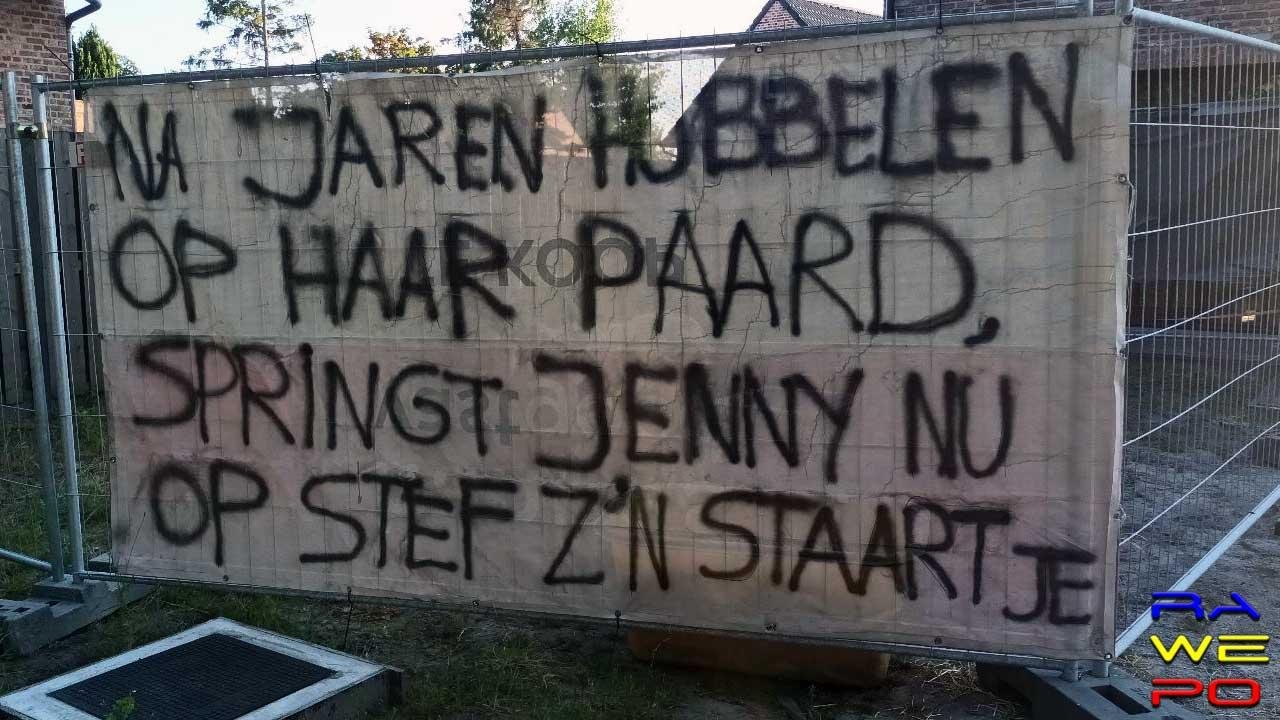 NA JAREN HUBBELEN
OP HAAR PAARD,
SPRINGT JENNY NU
OP STEF Z'N STAARTJE
RA
WE
PO